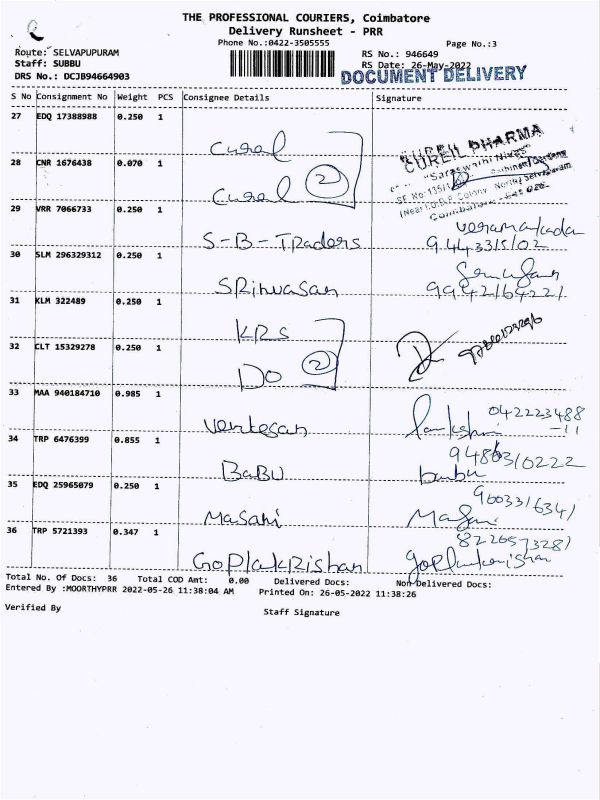 THE PROFESSIONAL COURIERS, Coimbatore
Delivery Runsheet - PRR
Phone No.:0422-3505555
Page No.:3
Route: SELVAPUPURAM
RS No.: 946649
Staff: SUBBU
RS Date: 26-May-2022
DRS No.: DCJB94664903
DOCUMENT DELIVERY
S No Consignment No Weight PCS Consignee Details Signature
27 EDQ 17388988 0.250 1
Curel
CUREIL PHARMA
"Saraswathi Nivas"
28 CNR 1676438 0.070 1
Curel 2
29 VRR 7066733 0.250 1
S-B-Traders
30 SLM 296329312 0.250 1
Srinivasan
31 KLM 322489 0.250 1
KRS
32 CLT 15329278 0.250 1
DO 2
33 MAA 940184710 0.985 1
Venkesan
042223488
-11
34 TRP 6476399 0.855 1
BABU
9486310222
babu
35 EDQ 25965079 0.250 1
Masani
9603316341
Masani
36 TRP 5721393 0.347 1
Goplakrishan
8226573281
Total No. Of Docs: 36 Total COD Amt: 0.00 Delivered Docs: Non Delivered Docs:
Entered By :MOORTHYPRR 2022-05-26 11:38:04 AM Printed On: 26-05-2022 11:38:26
Verified By
Staff Signature